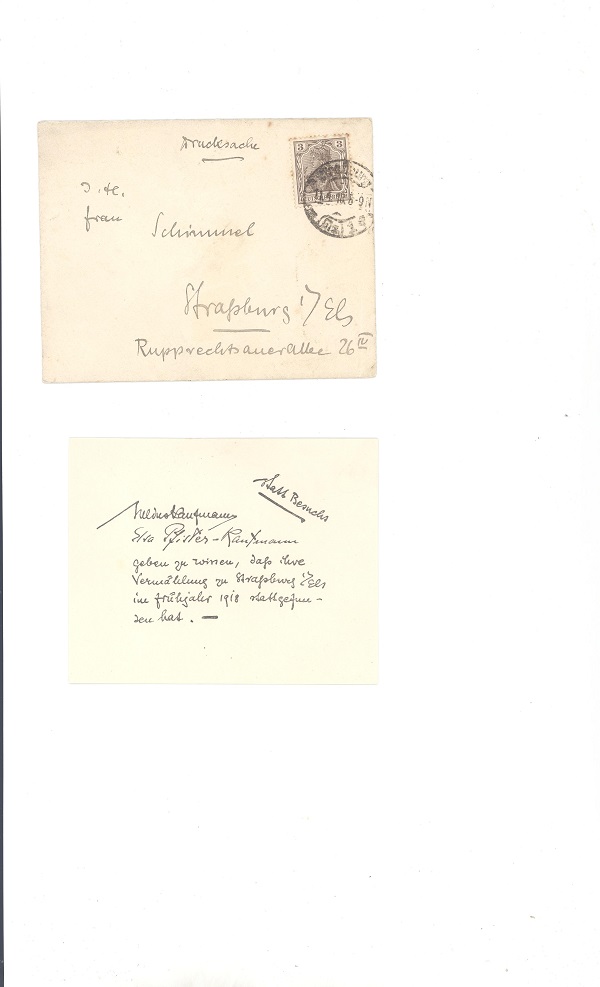 Drucksache
3 3
I. H.
Frau
Schimmel
Straßburg i/Els
Rupprechtsauerallee 26 IV
statt Besuchs
Kaufmann
Elsa Pfister-Kaufmann
geben zu wissen, daß ihre
Vermählung zu Straßburg i/Els
im Frühjahr 1918 stattgefun-
den hat. —